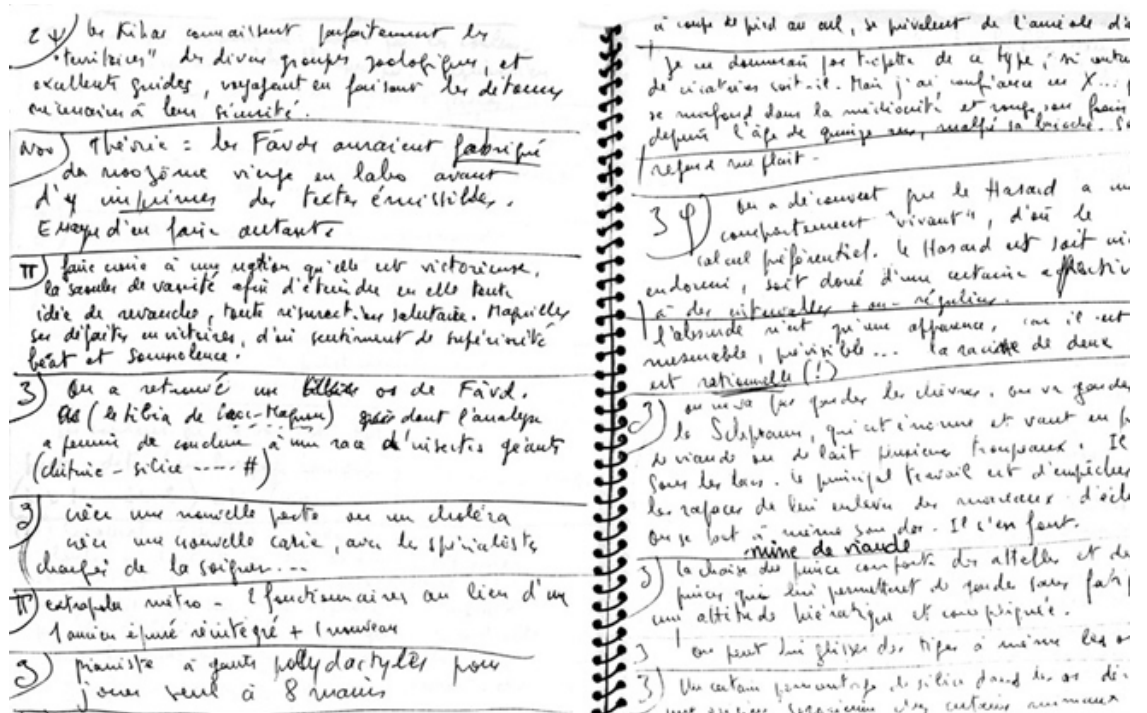 2 Ψ) les Kihas connaissent parfaitement les
"territoires" des divers groupes zoologiques, et
excellents guides, voyagent en faisant les détours
nécessaires à leur sécurité.
Noo) Théorie = les Fàvds auraient fabriqué
du noozôme vierge en labo avant
d'y imprimer des textes émissibles.
Essaye d'en faire autant
π) faire croire à une nation qu'elle est victorieuse,
la saouler de vanité afin d'éteindre en elle toute
idée de revanche, toute résurrection salutaire. Maquiller
ses défaites en victoires, d'où sentiment de supériorité
béat et somnolence.
3) On a retrouvé un os de Fàvd.
(le tibia de) dont l'analyse
a permis de conclure à une race d'insectes géants
(chitine - silice ---- #)
3) créer une nouvelle peste ou un choléra
créer une nouvelle carie, avec les spécialistes
chargés de la soigner....
π) extrapoler métro - 2 fonctionnaires au lieu d'un
1 ancien épuré réintégré + 1 nouveau
3) pianiste à gants polydactyles pour
jouer seul à 8 mains
à coups de pied au cul, se prévalent de l'auréole
Je ne donnerais pas tripette de ce type, si
de cicatrices soit-il. Mais j'ai confiance en X...
se morfond dans la médiocrité et ronge son frein
depuis l'âge de quinze ans, malgré sa brioche.
regard me plait.
3 φ) On a découvert que le Hasard a un
comportement "vivant", d'où le
calcul préférentiel. Le Hasard est soit
endormi, soit doué d'une certaine
à des intervalles + ou - réguliers.
l'absurde n'est qu'une apparence, car il est
mesurable, prévisible... la racine de deux
est rationnelle (!)
3) on ne va pas garder les chèvres, on va garder
le, qui est énorme et vaut en
de viande ou de lait plusieurs troupeaux. Il
sous les lacs. le principal travail est d'empêcher
les rapaces de lui enlever des morceaux
On se bat à même son dos. Il s'en fout.
mine de viande
3) la chaise du prince comporte des attelles et
pinces qui lui permettent de garder sans
une attitude hiératique et compliquée.
3 on peut lui glisser des tiges à même les
3) Un certain pourcentage de silice dans les os
certains animaux